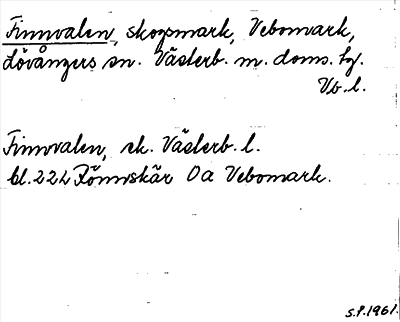 Finnvalen, skogsmark, Vebomark,
Lövångers sn. Västerb. m. doms. tg.
Vb. l.
Finnvalen, ek. Västerb. l.
bl. 222 Rönnskär Oa Vebomark.
S.P. 1961.